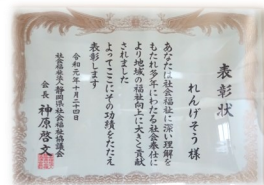 表彰状
れんげそう様
あなたは社会福祉に深い理解を
もたれ多年にわたる社会奉仕に
より地域の福祉向上に大きく貢献
されました
よってここにその功績をたたえ
表彰します
令和元年十月二十四日
社会福祉法人静岡県社会福祉協議会
会長 神原啓文